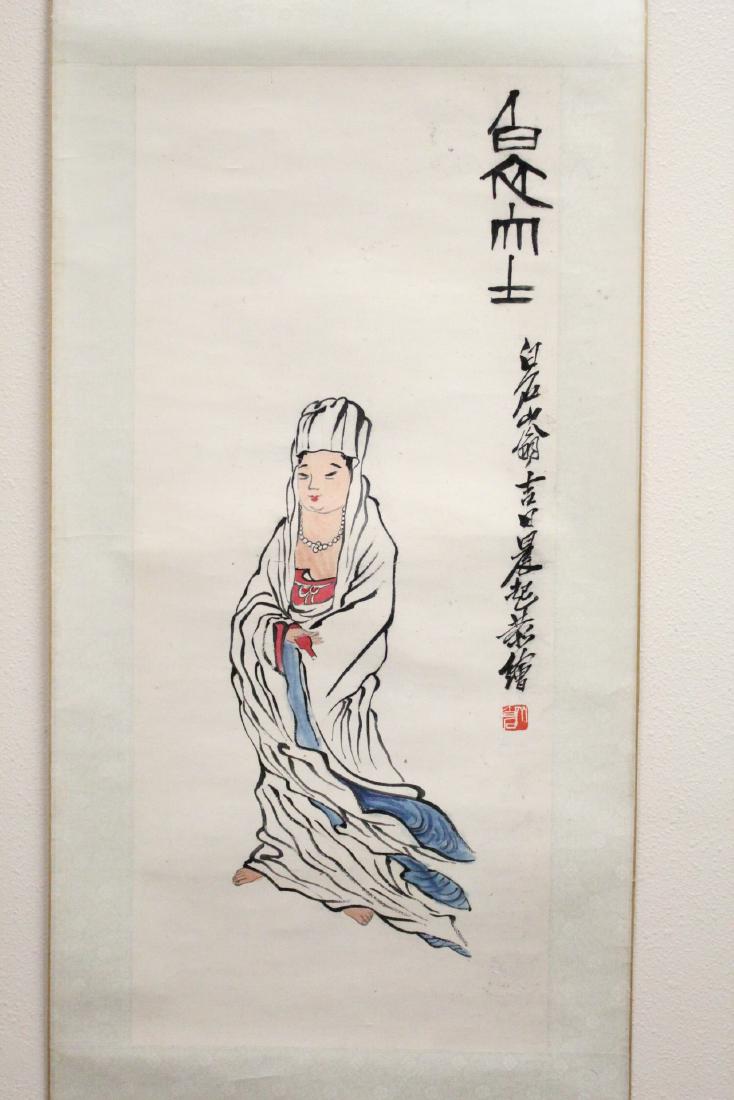 白衣大士
白石山翁吉日晨起恭繪